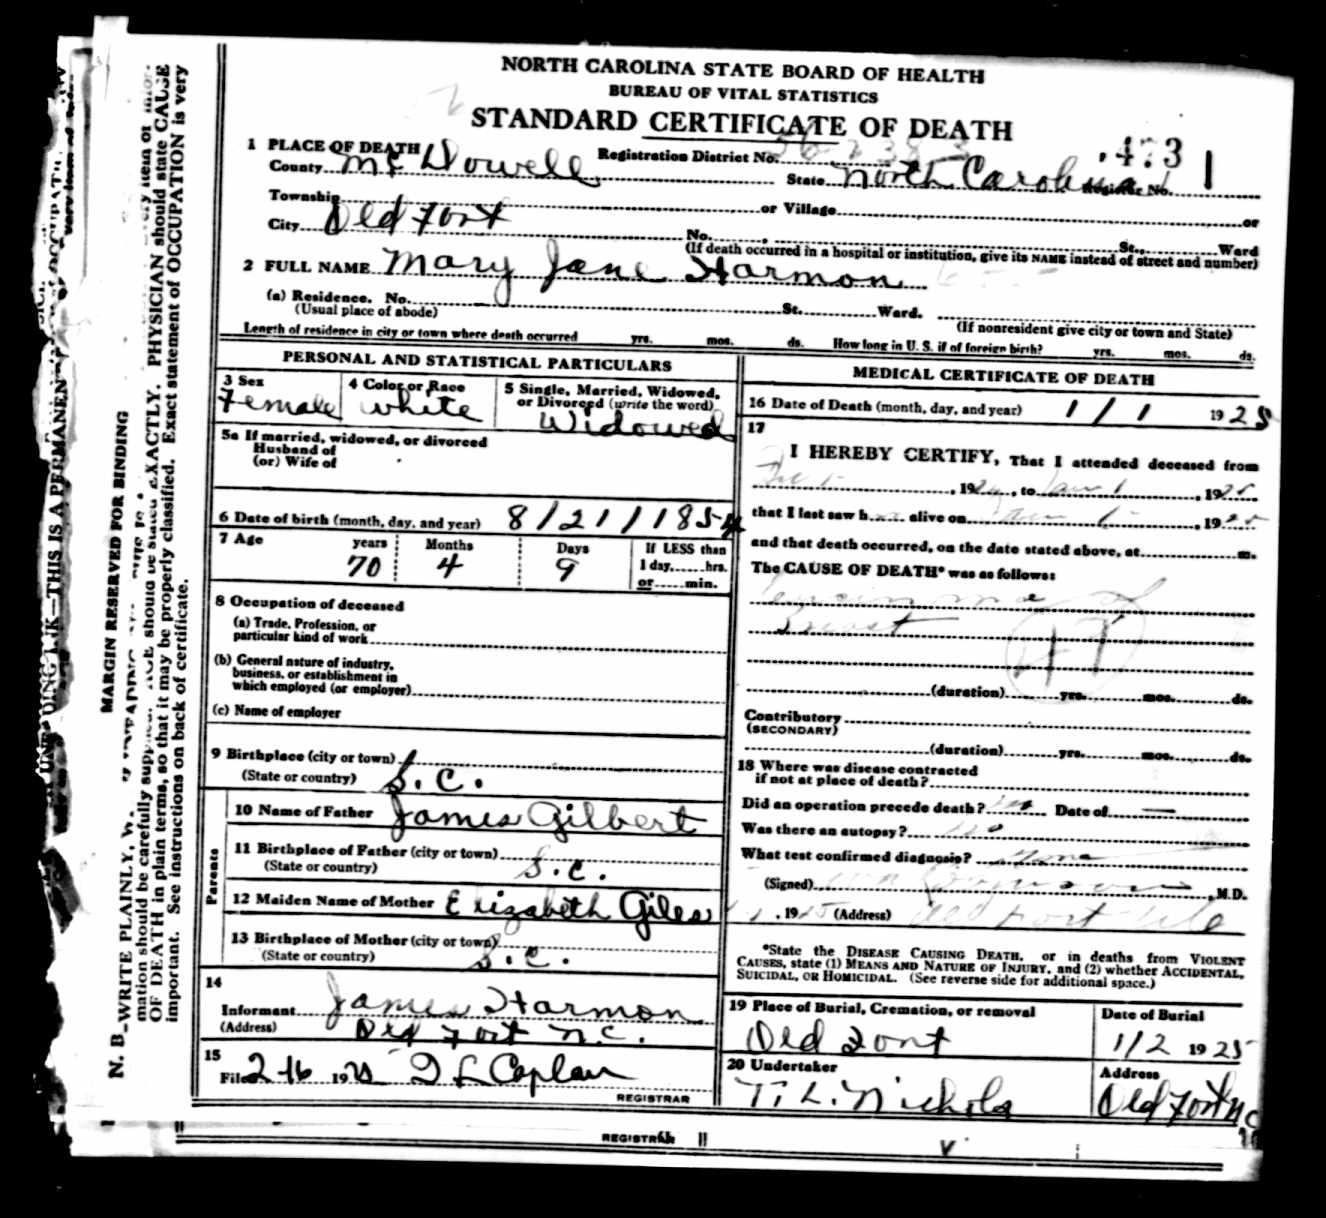 NORTH CAROLINA STATE BOARD OF HEALTH
BUREAU OF VITAL STATISTICS
STANDARD CERTIFICATE OF DEATH
473
1 PLACE OF DEATH
Registration District No.
County McDowell State North Carolina Register No. 1
Township or Village or
City Old Fort No. St., Ward
(If death occurred in a hospital or institution, give its NAME instead of street and number)
2 FULL NAME Mary Jane Harmon
(a) Residence. No. St. Ward.
(Usual place of abode) (If nonresident give city or town and State)
Length of residence in city or town where death occurred yrs. mos. ds. How long in U. S. if of foreign birth? yrs. mos. ds.
PERSONAL AND STATISTICAL PARTICULARS
3 Sex 4 Color or Race 5 Single, Married, Widowed, or Divorced (write the word)
Female White Widowed
5a If married, widowed, or divorced
Husband of
(or) Wife of
6 Date of birth (month, day, and year) 8/21/1854
7 Age years Months Days If LESS than
70 4 9 1 day, hrs.
or min.
8 Occupation of deceased
(a) Trade, Profession, or
particular kind of work
(b) General nature of industry,
business, or establishment in
which employed (or employer)
(c) Name of employer
9 Birthplace (city or town)
(State or country) S.C.
Parents
10 Name of Father James Gilbert
11 Birthplace of Father (city or town)
(State or country) S.C.
12 Maiden Name of Mother Elizabeth Giles
13 Birthplace of Mother (city or town)
(State or country) S.C.
14
Informant James Harmon
(Address) Old Fort N.C.
15
Filed 2-16 1925
REGISTRAR
MEDICAL CERTIFICATE OF DEATH
16 Date of Death (month, day, and year) 1/1 1925
17
I HEREBY CERTIFY, That I attended deceased from
, 1924, to Jan 1, 1925
that I last saw h alive on Jan 1, 1925
and that death occurred, on the date stated above, at m.
The CAUSE OF DEATH* was as follows:
Carcinoma of
Breast
47
(duration) yrs. mos. ds.
Contributory
(SECONDARY)
(duration) yrs. mos. ds.
18 Where was disease contracted
if not at place of death?
Did an operation precede death? Date of —
Was there an autopsy? no
What test confirmed diagnosis?
(Signed) , M.D.
, 1925 (Address) Old Fort
*State the DISEASE CAUSING DEATH, or in deaths from VIOLENT
CAUSES, state (1) MEANS AND NATURE OF INJURY, and (2) whether ACCIDENTAL,
SUICIDAL, OR HOMICIDAL. (See reverse side for additional space.)
19 Place of Burial, Cremation, or removal Date of Burial
Old Fort 1/2 1925
20 Undertaker Address
T. L. Nichols Old Fort NC
REGISTRAR
MARGIN RESERVED FOR BINDING
N. B.—WRITE PLAINLY,
UNFADING INK—THIS IS A PERMANENT
mation should be carefully supplied. AGE should be stated EXACTLY. PHYSICIAN should state CAUSE
OF DEATH in plain terms, so that it may be properly classified. Exact statement of OCCUPATION is very
important. See instructions on back of certificate.